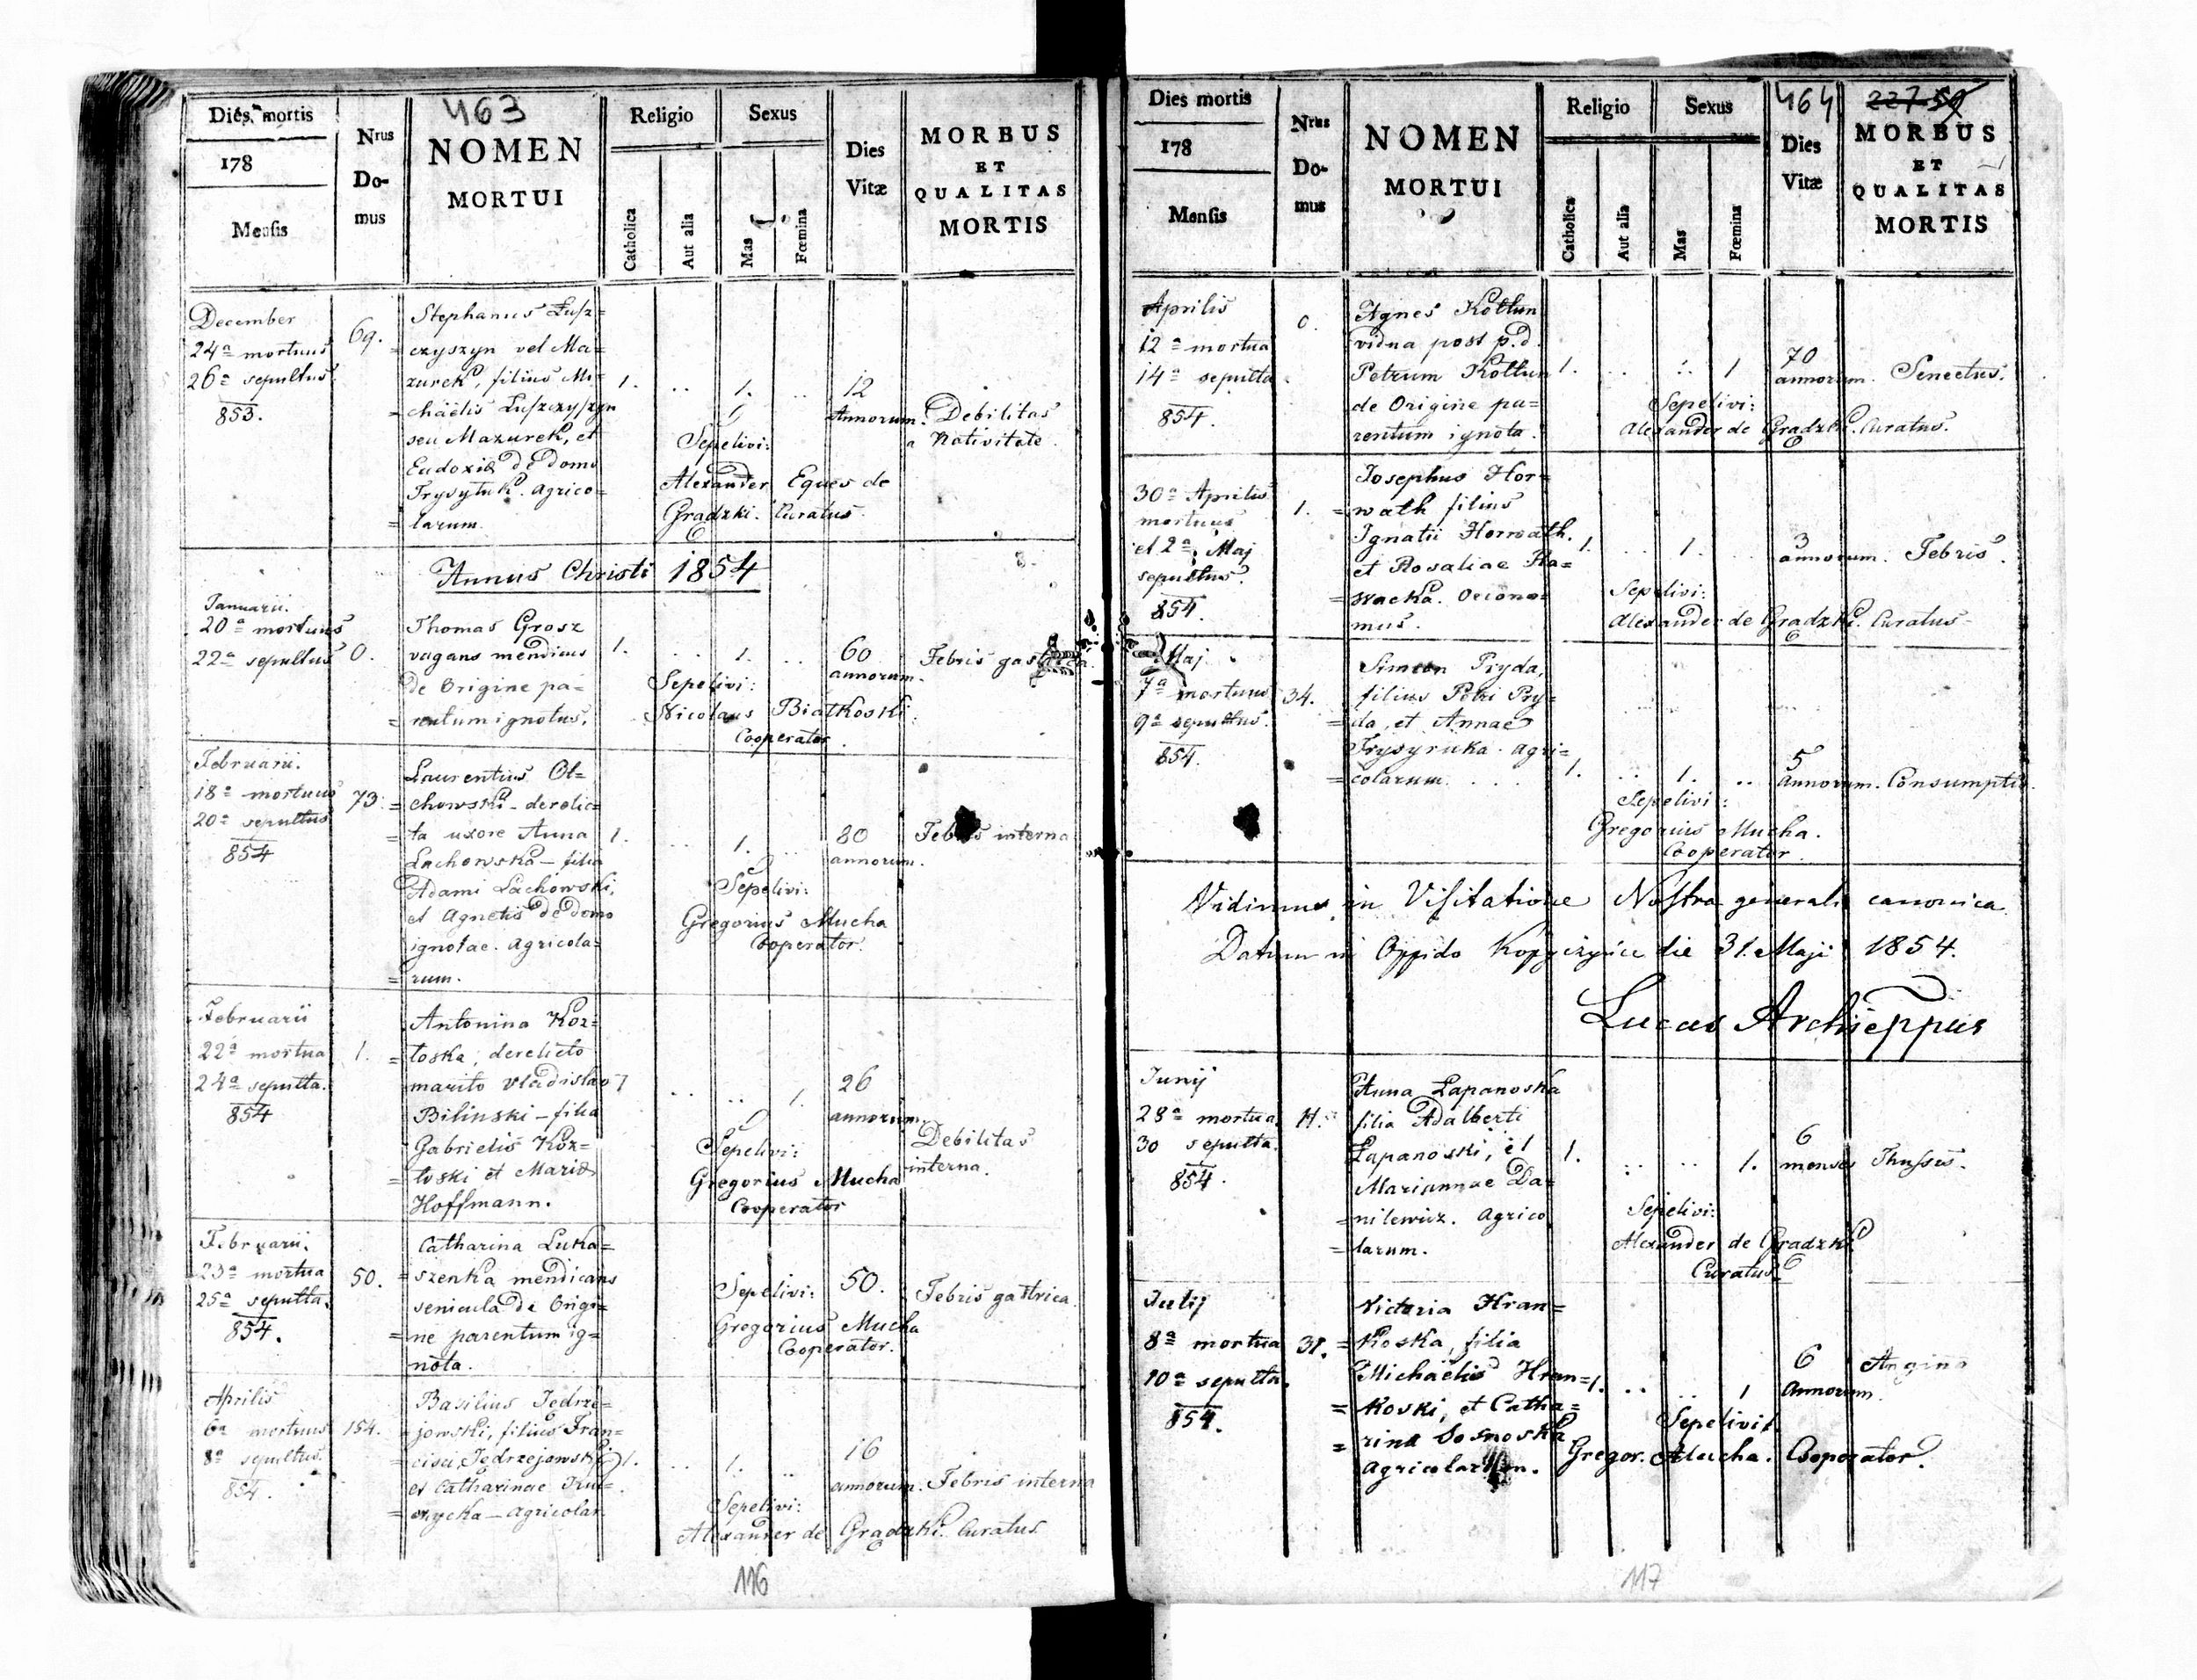 463
Dies mortis
178
Mensis
Nrus
Do-
mus
NOMEN
MORTUI
Religio
Catholica
Aut alia
Sexus
Mas
Fœmina
Dies
Vitæ
MORBUS
ET
QUALITAS
MORTIS
December
24ª mortuus
26ª sepultus
853.
69.
Stephanus Łusz=
=czyszyn vel Ma=
zurek, filius Mi=
=chaëlis Łuszczyszyn
seu Mazurek, et
Eudoxiæ de domo
Trysytnk. Agrico=
=larum.
1. .. 1. ..
12
Annorum.
Debilitas
a Nativitate.
Sepelivi:
Alexander Eques de
Gradzki. Curatus.
Annus Christi 1854
Januarii.
20ª mortuus
22ª sepultus
0.
Thomas Grosz
vagans mendicus
de Origine pa=
=rentum ignotus.
1. .. 1. ..
60
annorum.
Febris gastrica
Sepelivi:
Nicolaus Białkoski.
Cooperator.
Februarii.
18ª mortuus
20ª sepultus
854
73.
Laurentius Ol=
=chowski - derelic=
=ta uxore Anna
Lachowska - filia
Adami Lachowski,
et Agnetis de domo
ignotae. Agricola=
=rum.
1. .. 1. ..
80
annorum.
Febris interna
Sepelivi:
Gregorius Mucha
Cooperator.
Februarii
22ª mortua
24ª sepulta.
854
1.
Antonina Koz=
=łoska, derelicto
marito Vladislao
Bilinski - filia
Gabrielis Koz=
=łoski et Mariæ
Hoffmann.
1 .. .. 1.
26
annorum.
Debilitas
interna.
Sepelivi:
Gregorius Mucha
Cooperator
Februarii.
23ª mortua
25ª sepulta.
854.
50.
Catharina Luka=
=szenka mendicans
senicula de Origi=
=ne parentum ig=
nota.
50.
Febris gastrica
Sepelivi:
Gregorius Mucha
Cooperator.
Aprilis
6ª mortuus
8ª sepultus.
854.
154.
Basilius Jedrze=
=jowski, filius Fran=
=cisci Jędrzejowski
et Catharinae
=czycka - Agricolar.
1. .. 1. ..
16
annorum.
Febris interna
Sepelivi:
Alexander de Gradzki. Curatus
116
464
227.59
Dies mortis
178
Mensis
Nrus
Do-
mus
NOMEN
MORTUI
Religio
Catholica
Aut alia
Sexus
Mas
Fœmina
Dies
Vitæ
MORBUS
ET
QUALITAS
MORTIS
Aprilis
12ª mortua
14ª sepulta
854.
0.
Agnes Kołtun
vidua post p.d.
Petrum Kołtun
de Origine pa=
rentum ignota.
1. .. .. 1
70
annorum.
Senectus.
Sepelivi:
Alexander de Gradzki. Curatus.
30ª Aprilis
mortuus
et 2ª Maj
sepultus.
854.
1.
Josephus Hor=
=wath filius
Ignatii Horwath.
et Rosaliae Ra=
=wacka. Oecono=
mus.
1. .. 1. ..
3
annorum.
Febris.
Sepelivi:
Alexander de Gradzki. Curatus
Maj
7ª mortuus
9ª sepultus.
854.
34.
Simeon Pryda,
filius Petri Pry=
=da, et Annae
Trysyruka. Agri=
=colarum. . . .
1. .. 1. ..
5
Annorum.
Consumptio.
Sepelivi:
Gregorius Mucha.
Cooperator.
Vidimus in Visitatione Nostra generali canonica
Datum in Oppido Kopyczyńce die 31. Maji 1854.
Lucas Archieppus
Junij
28ª mortua
30 sepulta.
854.
Anna Łapanoska
filia Adalberti
Łapanoski, et
Mariannae Da=
=nilewicz. Agrico
=larum.
1. .. .. 1.
6
menses
Thussis.
Sepelivi:
Alexander de Gradzki
Curatus
Julij
8ª mortua
10ª sepulta.
854.
31.
Victoria Hran=
=koska, filia
Michaëlis Hran=
=koski, et Catha=
=rina Sosnoska
Agricolarum.
1. .. .. 1
6
Annorum.
Angina
Sepelivit
Gregor. Mucha. Cooperator.
117